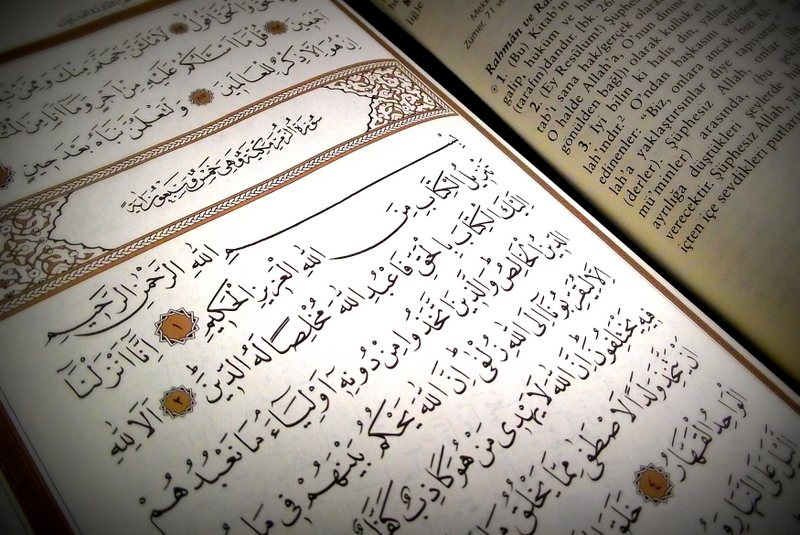 لَاَمْلَـَٔنَّ جَهَنَّمَ مِنْكَ وَمِمَّنْ
اَجْمَعٖينَ قُلْ مَٓا اَسْـَٔلُكُمْ عَلَيْهِ مِنْ اَجْرٍ وَمَٓا اَنَا مِنَ
اِنْ هُوَ اِلَّا ذِكْرٌ لِلْعَالَمٖينَ وَلَتَعْلَمُنَّ نَبَاَهُ بَعْدَ حٖينٍ
سُورَةُ الزُّمَرِ مَكِّيَّةٌ وَهِيَ خَمْسٌ وَسَبْعُونَ اٰيَةً
بِسْمِ اللّٰهِ الرَّحْمٰنِ الرَّحٖيمِ
تَنْزٖيلُ الْكِتَابِ مِنَ اللّٰهِ الْعَزٖيزِ الْحَكٖيمِ ١ اِنَّٓا اَنْزَلْنَٓا
اِلَيْكَ الْكِتَابَ بِالْحَقِّ فَاعْبُدِ اللّٰهَ مُخْلِصًا لَهُ الدّٖينَ ٢ اَلَا لِلّٰهِ
الدّٖينُ الْخَالِصُ وَالَّذٖينَ اتَّخَذُوا مِنْ دُونِهٖٓ اَوْلِيَٓاءَ مَا نَعْبُدُهُمْ
اِلَّا لِيُقَرِّبُونَٓا اِلَى اللّٰهِ زُلْفٰى اِنَّ اللّٰهَ يَحْكُمُ بَيْنَهُمْ فٖى مَا
فٖيهِ يَخْتَلِفُونَ اِنَّ اللّٰهَ لَا يَهْدٖى مَنْ هُوَ كَاذِبٌ كَفَّارٌ
اَنْ يَتَّخِذَ وَلَدًا لَاصْطَفٰى مِمَّا يَخْلُقُ
الْوَاحِدُ الْقَهَّارُ ٤ خَلَقَ
الَّيْلَ عَلَى النَّهَارِ وَ
Zümer, 71 v
Rahmân ve Ra
1. (Bu) Kitab'ın
galip, hüküm ve hi
(tarafın)dandır. (bk. 26
2. (Ey Resûlüm!) Şüphes
rab'ı sana hak/gerçek olara
O halde Allah'a, O'nun dinine
gönülden bağlı) olarak kulluk et.
3. İyi bilin ki halis din, yalnız
lah'ındır.² O'ndan başkasını velîler
edinenler: «Biz, onlara ancak bizi Al-
lah'a yaklaştırsınlar diye tapıyoruz»
(derler). Şüphesiz Allah, onlar ile
mü'minler) arasında, (bu şekilde
ayrılığa düştükleri şeylerde hük
verecektir. Şüphesiz Allah, ya
içten içe sevdikleri putları